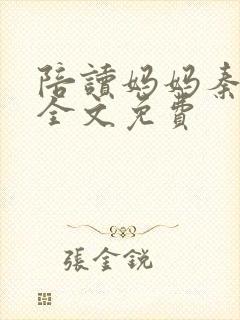 陪讀妈妈秦
全文免費
張金銳